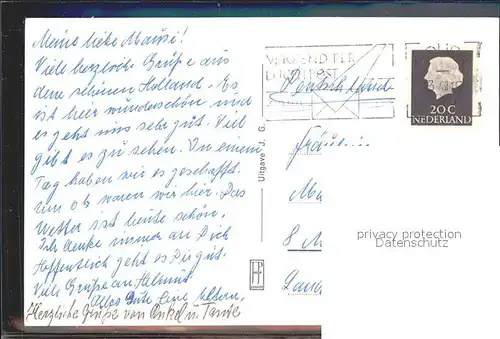 Meine liebe Mausi!
Viele herzliche Grüße aus
dem schönen Holland. Es
ist hier wunderschön und
es geht uns sehr gut. Viel
gibt es zu sehen. In einem
Tag haben wir es geschafft
um ob waren wir hier. Das
Wetter ist heute schön,
Ich denke immer an Dich
Hoffentlich geht es Dir gut.
Viele Grüße an Helmut
Alles Gute Eure Eltern,
Herzliche Grüße von Onkel u. Tante
Uitgave J. G.
VERZEND PER
LUCHTPOST
Deutschland
20 C
NEDERLAND
Fräulein
Ma
8 M
privacy protection
Datenschutz